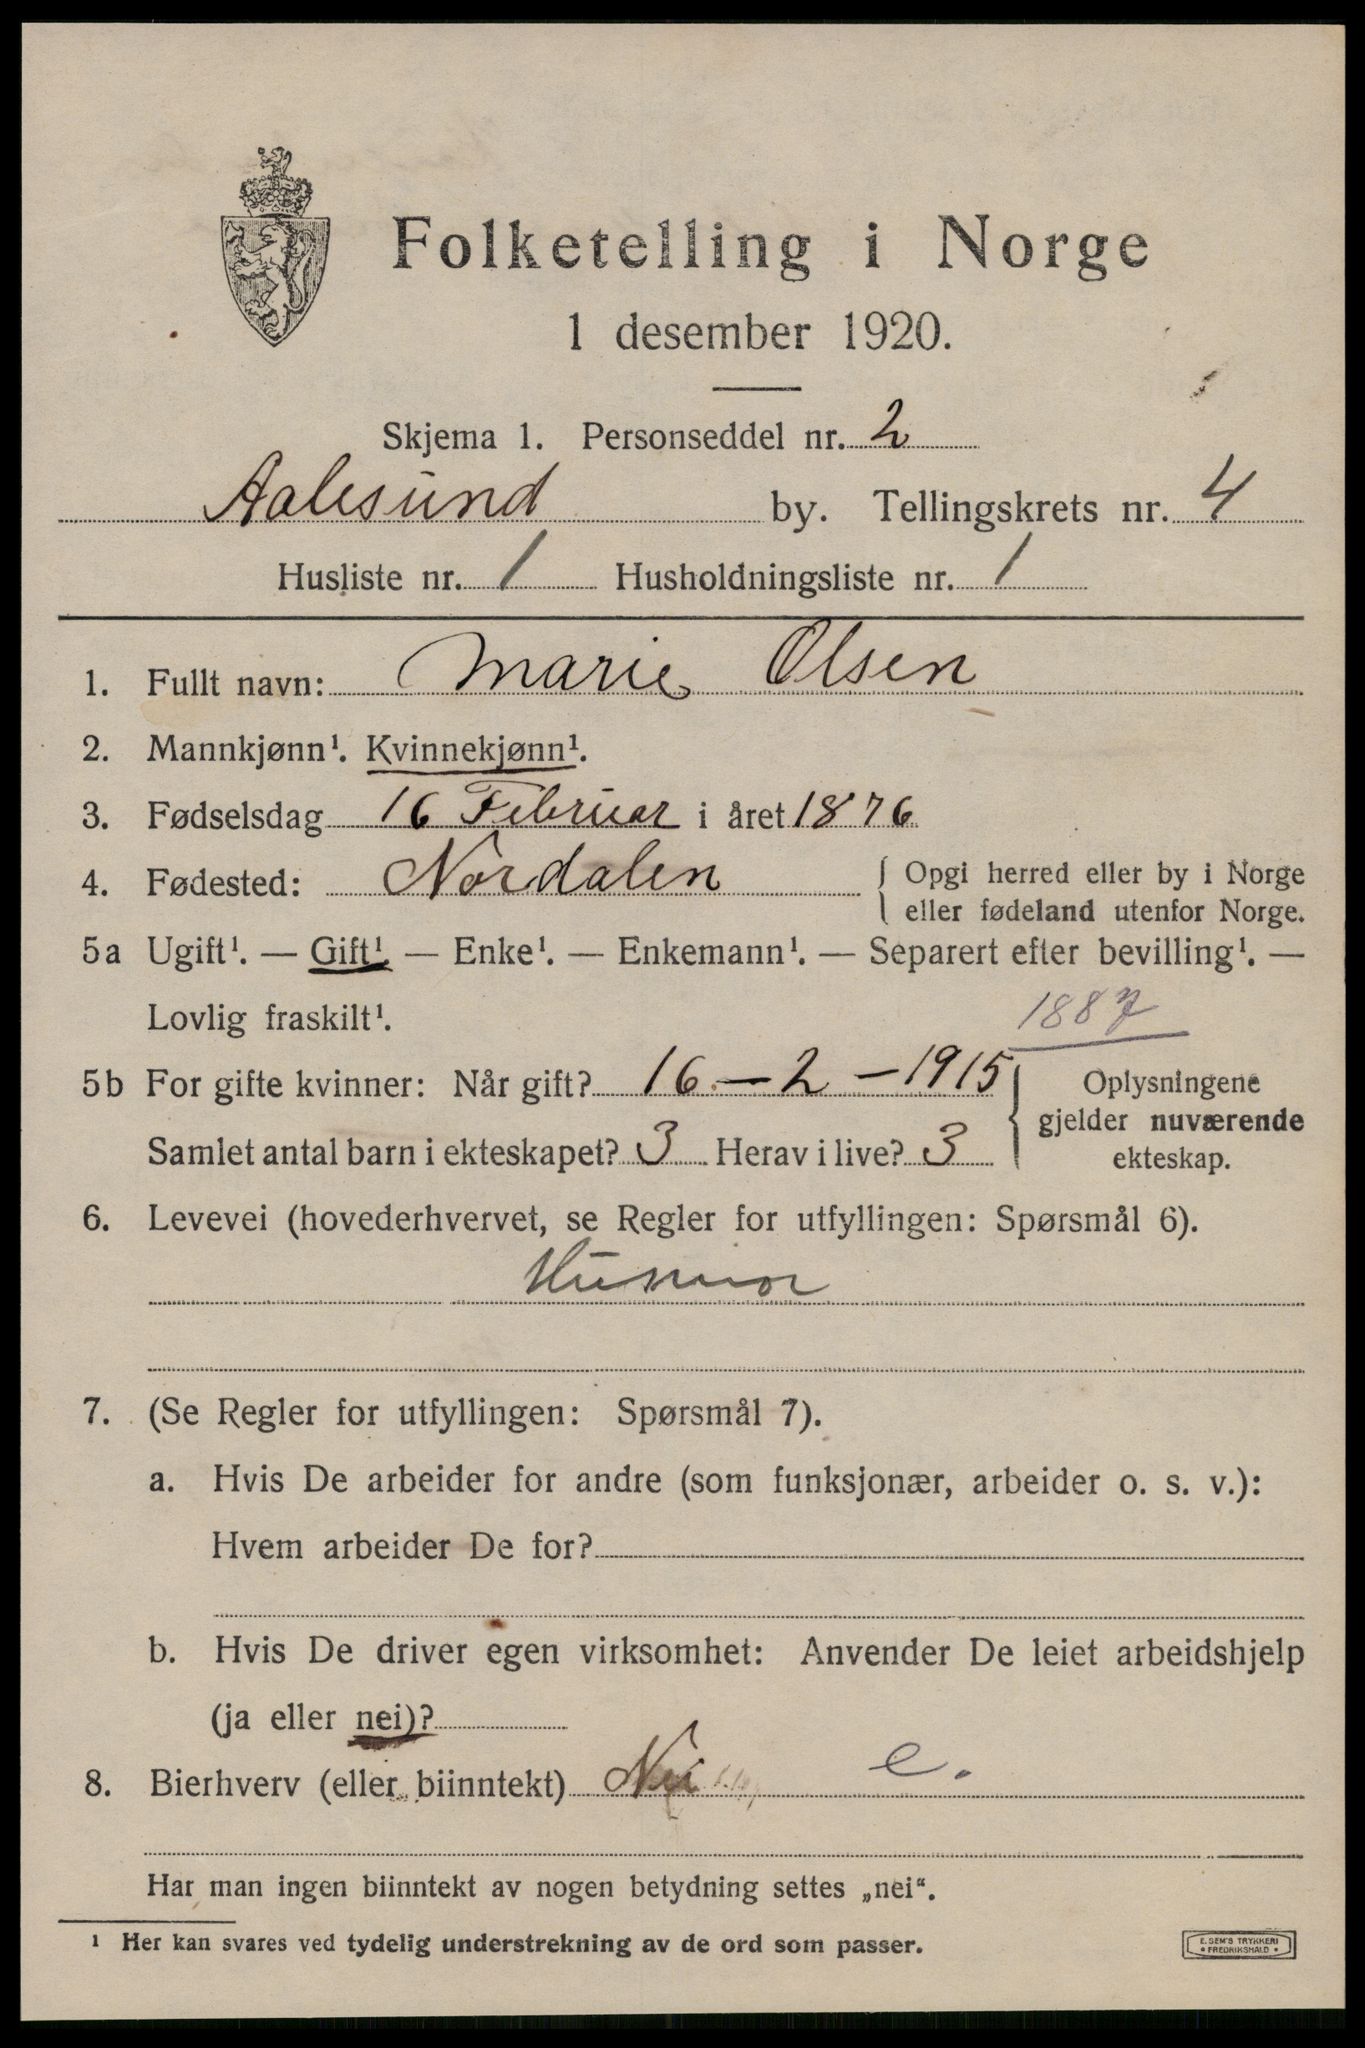 Folketelling i Norge
1 desember 1920.
Skjema 1. Personseddel nr. 2
Aalesund by. Tellingskrets nr. 4
Husliste nr. 1 Husholdningsliste nr. 1
1. Fullt navn: Marie Olsen
2. Mannkjønn¹. Kvinnekjønn¹.
3. Fødselsdag 16 Februar i året 1876
4. Fødested: Nordalen { Opgi herred eller by i Norge
eller fødeland utenfor Norge.
5a Ugift¹. — Gift¹. — Enke¹. — Enkemann¹. — Separert efter bevilling¹. —
Lovlig fraskilt¹.
1887
5b For gifte kvinner: Når gift? 16 - 2 - 1915 { Oplysningene
gjelder nuværende
Samlet antal barn i ekteskapet? 3 Herav i live? 3
ekteskap.
6. Levevei (hovederhvervet, se Regler for utfyllingen: Spørsmål 6).
Husmor
7. (Se Regler for utfyllingen: Spørsmål 7).
a. Hvis De arbeider for andre (som funksjonær, arbeider o. s. v.):
Hvem arbeider De for?
b. Hvis De driver egen virksomhet: Anvender De leiet arbeidshjelp
(ja eller nei)?
8. Bierhverv (eller biinntekt) Nei e.
Har man ingen biinntekt av nogen betydning settes „nei“.
¹ Her kan svares ved tydelig understrekning av de ord som passer.
E. SEM'S TRYKKERI
• FREDRIKSHALD •